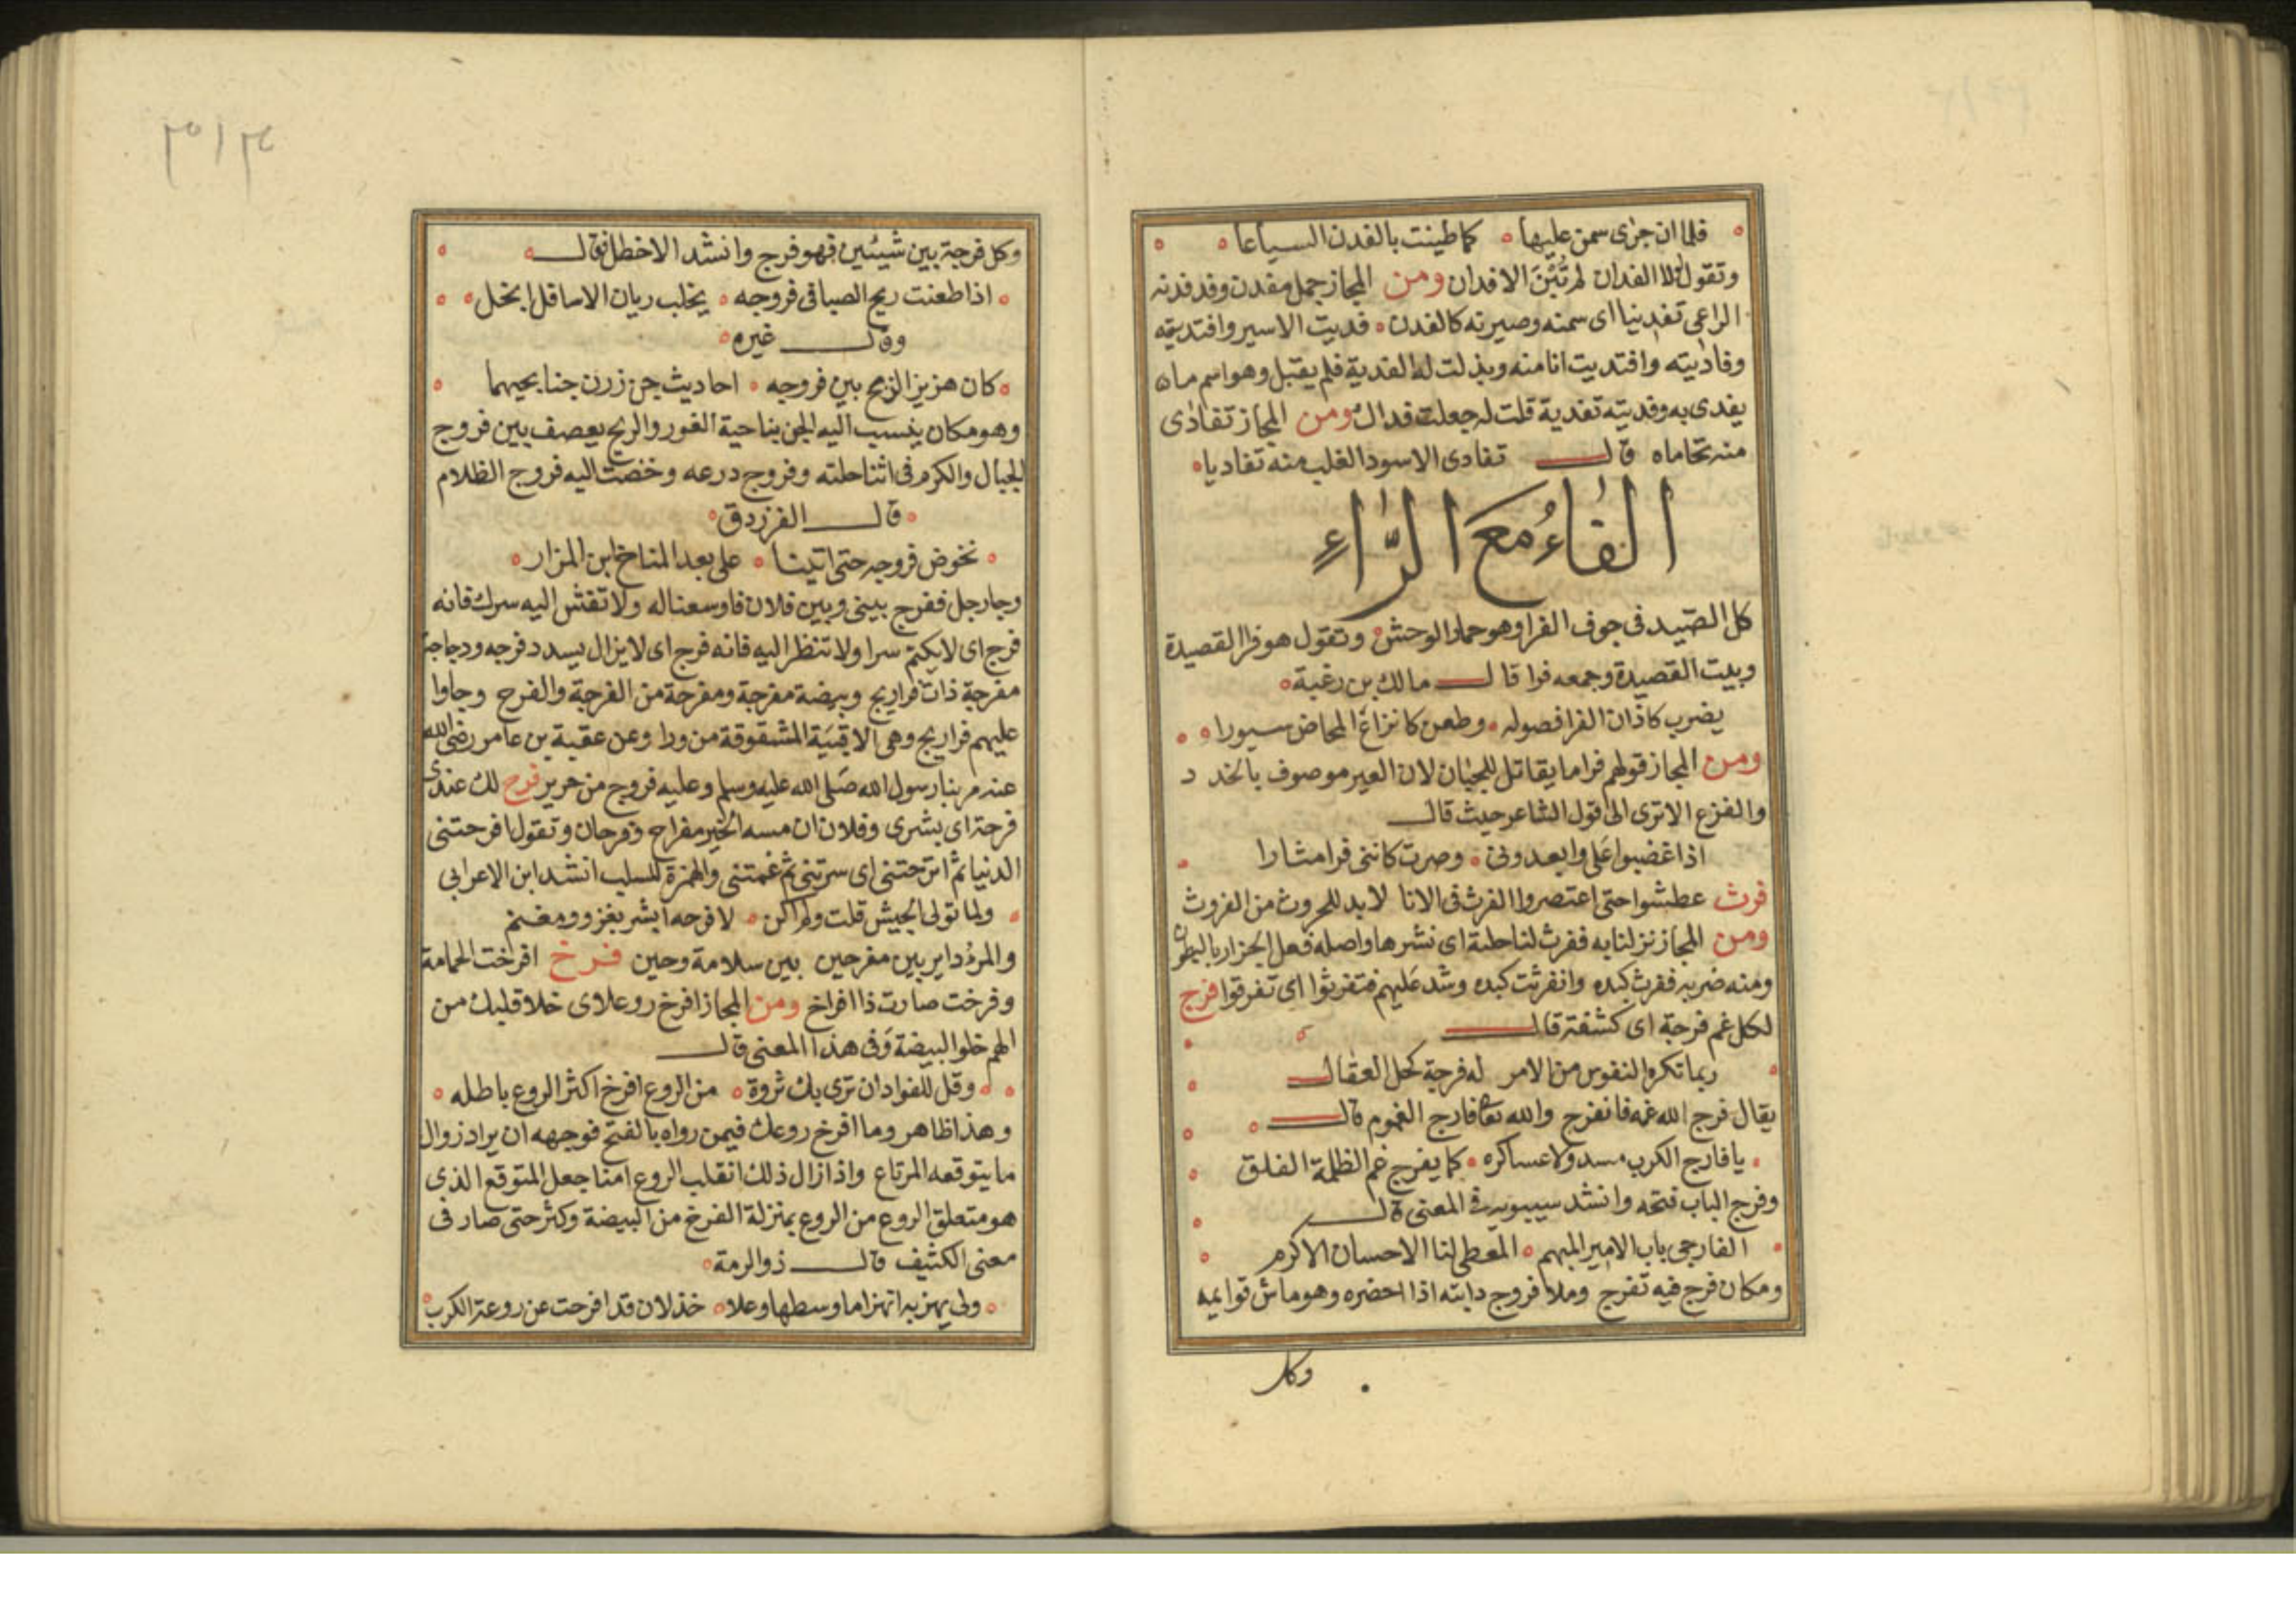 فلما ان جرى سمن عليها كما طينت بالفدن السياعا
وتقول لولا الفدان لم تُبْنَ الافدان ومن المجاز جمل مفدن وقد فدنه
الراعى تفدينا اى سمنه وصيرته كالفدن فديت الاسير وافتديته
وفاديته وافتديت انا منه وبذلت له الفدية فلم يقبل وهو اسم ما
يفدى به وفديته تفدية قلت له جعلت فداك ومن المجاز تفادى
منه تحاماه قال تفادى الاسود الغلب منه تفاديا
الفَاءُ مَعَ الرَّاءِ
كل الصّيد فى جوف الفرا وهو حمار الوحش وتقول هو فرا القصيدة
وبيت القصيدة وجمعه فرا قال مالك بن زغبة
يضرب كاذان الفرا فصوله وطعن كانزاغ المخاض سبورا
ومن المجاز قولهم فرا ما يقاتل للجبان لان العير موصوف
والفزع الاترى الى قول الشاعر حيث قال
اذا غضبوا على وابعدونى وصرت كاننى فرا مشارا
فرث عطشوا حتى اعتصروا الفرث فى الانا لابد للحروث من الفروث
ومن المجاز نزلنا به ففرث لنا جلته اى نشرها واصله فعل الجزار بالبطون
ومنه ضربه ففرث كبده وانفرثت كبده وشد عليهم فتفرثوا اى تفرقوا فرج
لكل غم فرجة اى كشفة قال
ربما تكره النفوس من الامر له فرجة كحل العقال
يقال فرج الله غمه فانفرج والله تعالى فارج الغموم قال
يا فارج الكرب مسدولا عساكره كما يفرج غم الظلمة الفلق
وفرج الباب فتحه وانشد سيبويه فى المعنى قال
الفارجى باب الامير المبهم المعطى لنا الاحسان الاكرم
ومكان فرج فيه تفرج وملا فروج دابته اذا احضره وهو ما بين قوايمه
وكل
٣١٣
وكل فرجة بين شيئين فهو فرج وانشد الاخطل قال
اذا طعنت ريح الصبا فى فروجه يحلب ريان الاسافل انجل
وقال غيره
كان هزيز الريح بين فروجه احاديث جن زرن جنا بجيهما
وهو مكان ينسب اليه الجن بناحية الغور والريح يعصف بين فروج
الجبال والكرم فى اثنا حلته وفروج درعه وخضت اليه فروج الظلام
قال الفرزدق
نخوض فروجه حتى اتينا على بعد المناخ ابن المزار
وجا رجل ففرج بينى وبين فلان فاوسعنا له ولا تفش اليه سرك فانه
فرج اى لا يكتم سرا ولا تنظر اليه فانه فرج اى لا يزال يسدد فرجه ودجاجة
مفرجة ذات فراريج وبيضة مفرجة ومفرحة من الفرجة والفرح وجاوا
عليهم فراريج وهى الاقبية المشقوقة من ورا وعن عقبة بن عامر رضى الله
عنه مر بنا رسول الله صلى الله عليه وسلم وعليه فروج من حرير فرح لك عندى
فرحة اى بشرى وفلان ان مسه الخير مفراح وفرحان وتقول افرحتنى
الدنيا ثم افرحتنى اى سرتنى ثم غمتنى والهمزة للسلب انشد ابن الاعرابى
ولما تولى الجيش قلت ولم اكن لافرحه ابشر بغزو ومغنم
والمرؤ داير بين مفرحين بين سلامة وحين فرخ افرخت الحمامة
وفرخت صارت ذا افراخ ومن المجاز افرخ روعك اى خلا قلبك من
الهم خلو البيضة وفى هذا المعنى قال
وقل للفواد ان ترى بك ثروة من الروع افرخ اكثر الروع باطله
وهذا ظاهر وما افرخ روعك فيمن رواه بالفتح فوجهه ان يراد زوال
ما يتوقعه المرتاع واذا زال ذلك انقلب الروع امنا جعل المتوقع الذى
هو متعلق الروع من الروع بمنزلة الفرخ من البيضة وكثر حتى صار فى
معنى الكثيف قال ذو الرمة
ولى يهز به انهزاما وسطها وعلا خذلان قد افرخت عن روعه الكرب